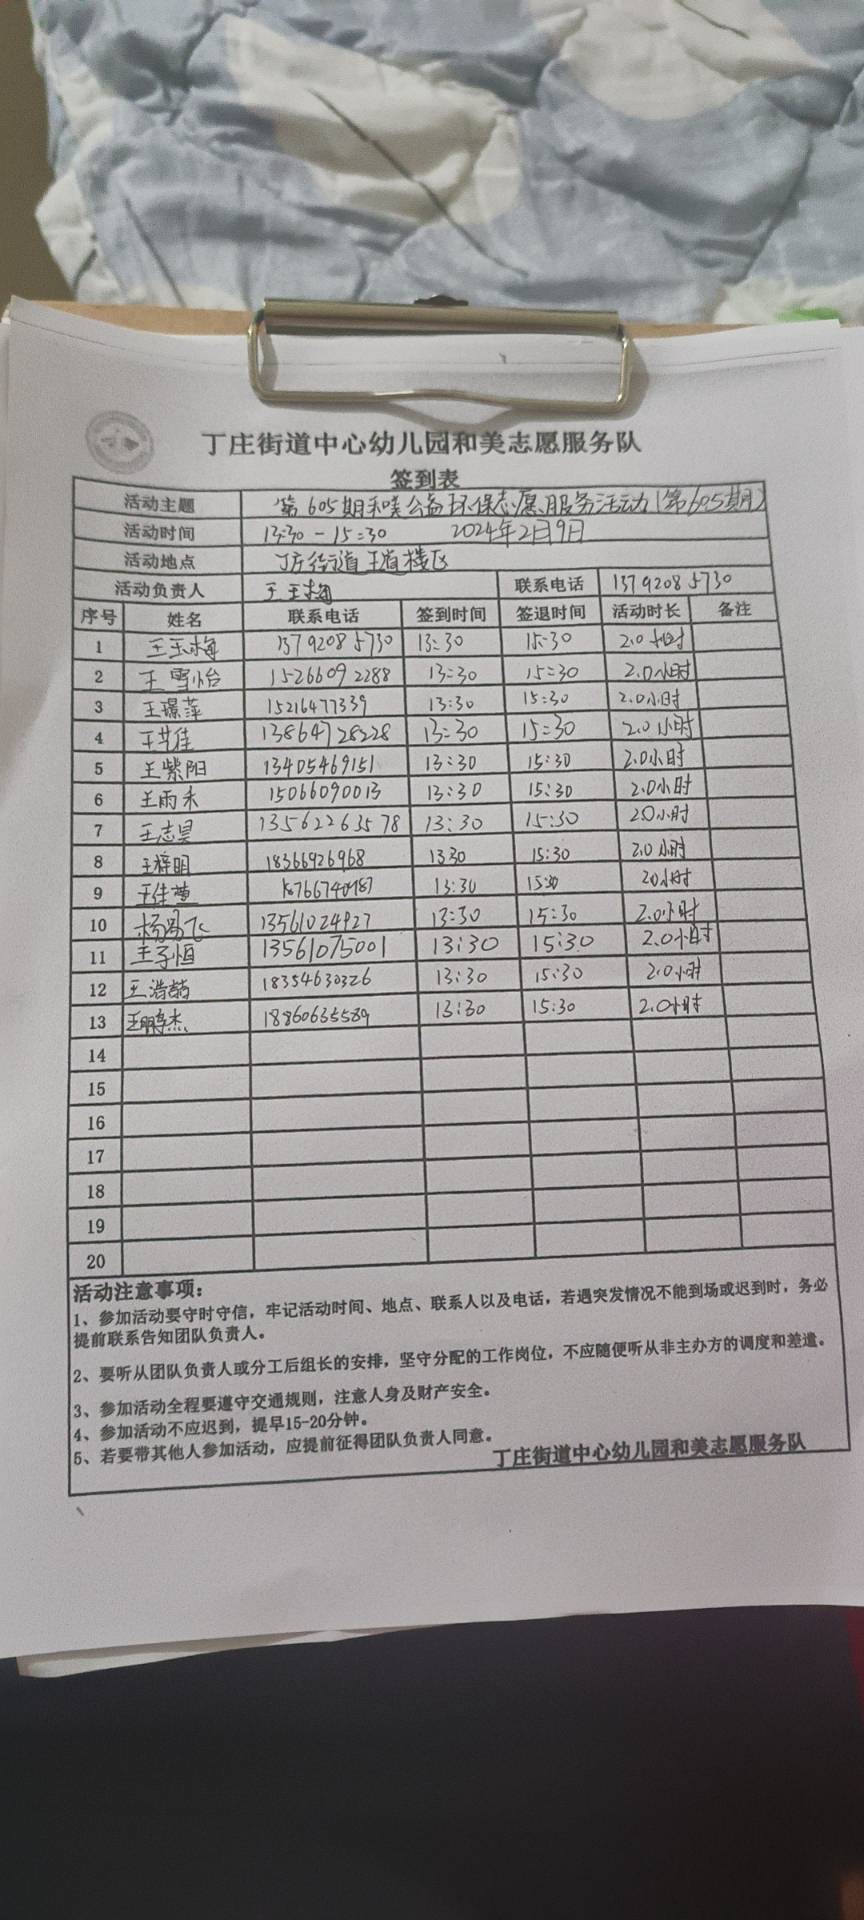 丁庄街道中心幼儿园和美志愿服务队
签到表
活动主题 第605期和美公益环保志愿服务活动(第605期)
活动时间 13:30-15:30 2024年2月9日
活动地点 丁庄街道王道楼区
活动负责人 王玉梅 联系电话 13792085730
序号 姓名 联系电话 签到时间 签退时间 活动时长 备注
1 王玉梅 13792085730 13:30 15:30 2.0小时
2 王雪怡 15266092288 13:30 15:30 2.0小时
3 王璟萍 15216477339 13:30 15:30 2.0小时
4 王艺佳 13864728228 13:30 15:30 2.0小时
5 王紫阳 13405469151 13:30 15:30 2.0小时
6 王雨禾 15066090013 13:30 15:30 2.0小时
7 王志昊 13562263578 13:30 15:30 2.0小时
8 王梓明 18366926968 13:30 15:30 2.0小时
9 13:30 15:30 2.0小时
10 13561024927 13:30 15:30 2.0小时
11 王子恒 13561075001 13:30 15:30 2.0小时
12 18354630326 13:30 15:30 2.0小时
13 18860635589 13:30 15:30 2.0小时
14
15
16
17
18
19
20
活动注意事项:
1、参加活动要守时守信,牢记活动时间、地点、联系人以及电话,若遇突发情况不能到场或迟到时,务必
提前联系告知团队负责人。
2、要听从团队负责人或分工后组长的安排,坚守分配的工作岗位,不应随便听从非主办方的调度和差遣。
3、参加活动全程要遵守交通规则,注意人身及财产安全。
4、参加活动不应迟到,提早15-20分钟。
5、若要带其他人参加活动,应提前征得团队负责人同意。
丁庄街道中心幼儿园和美志愿服务队